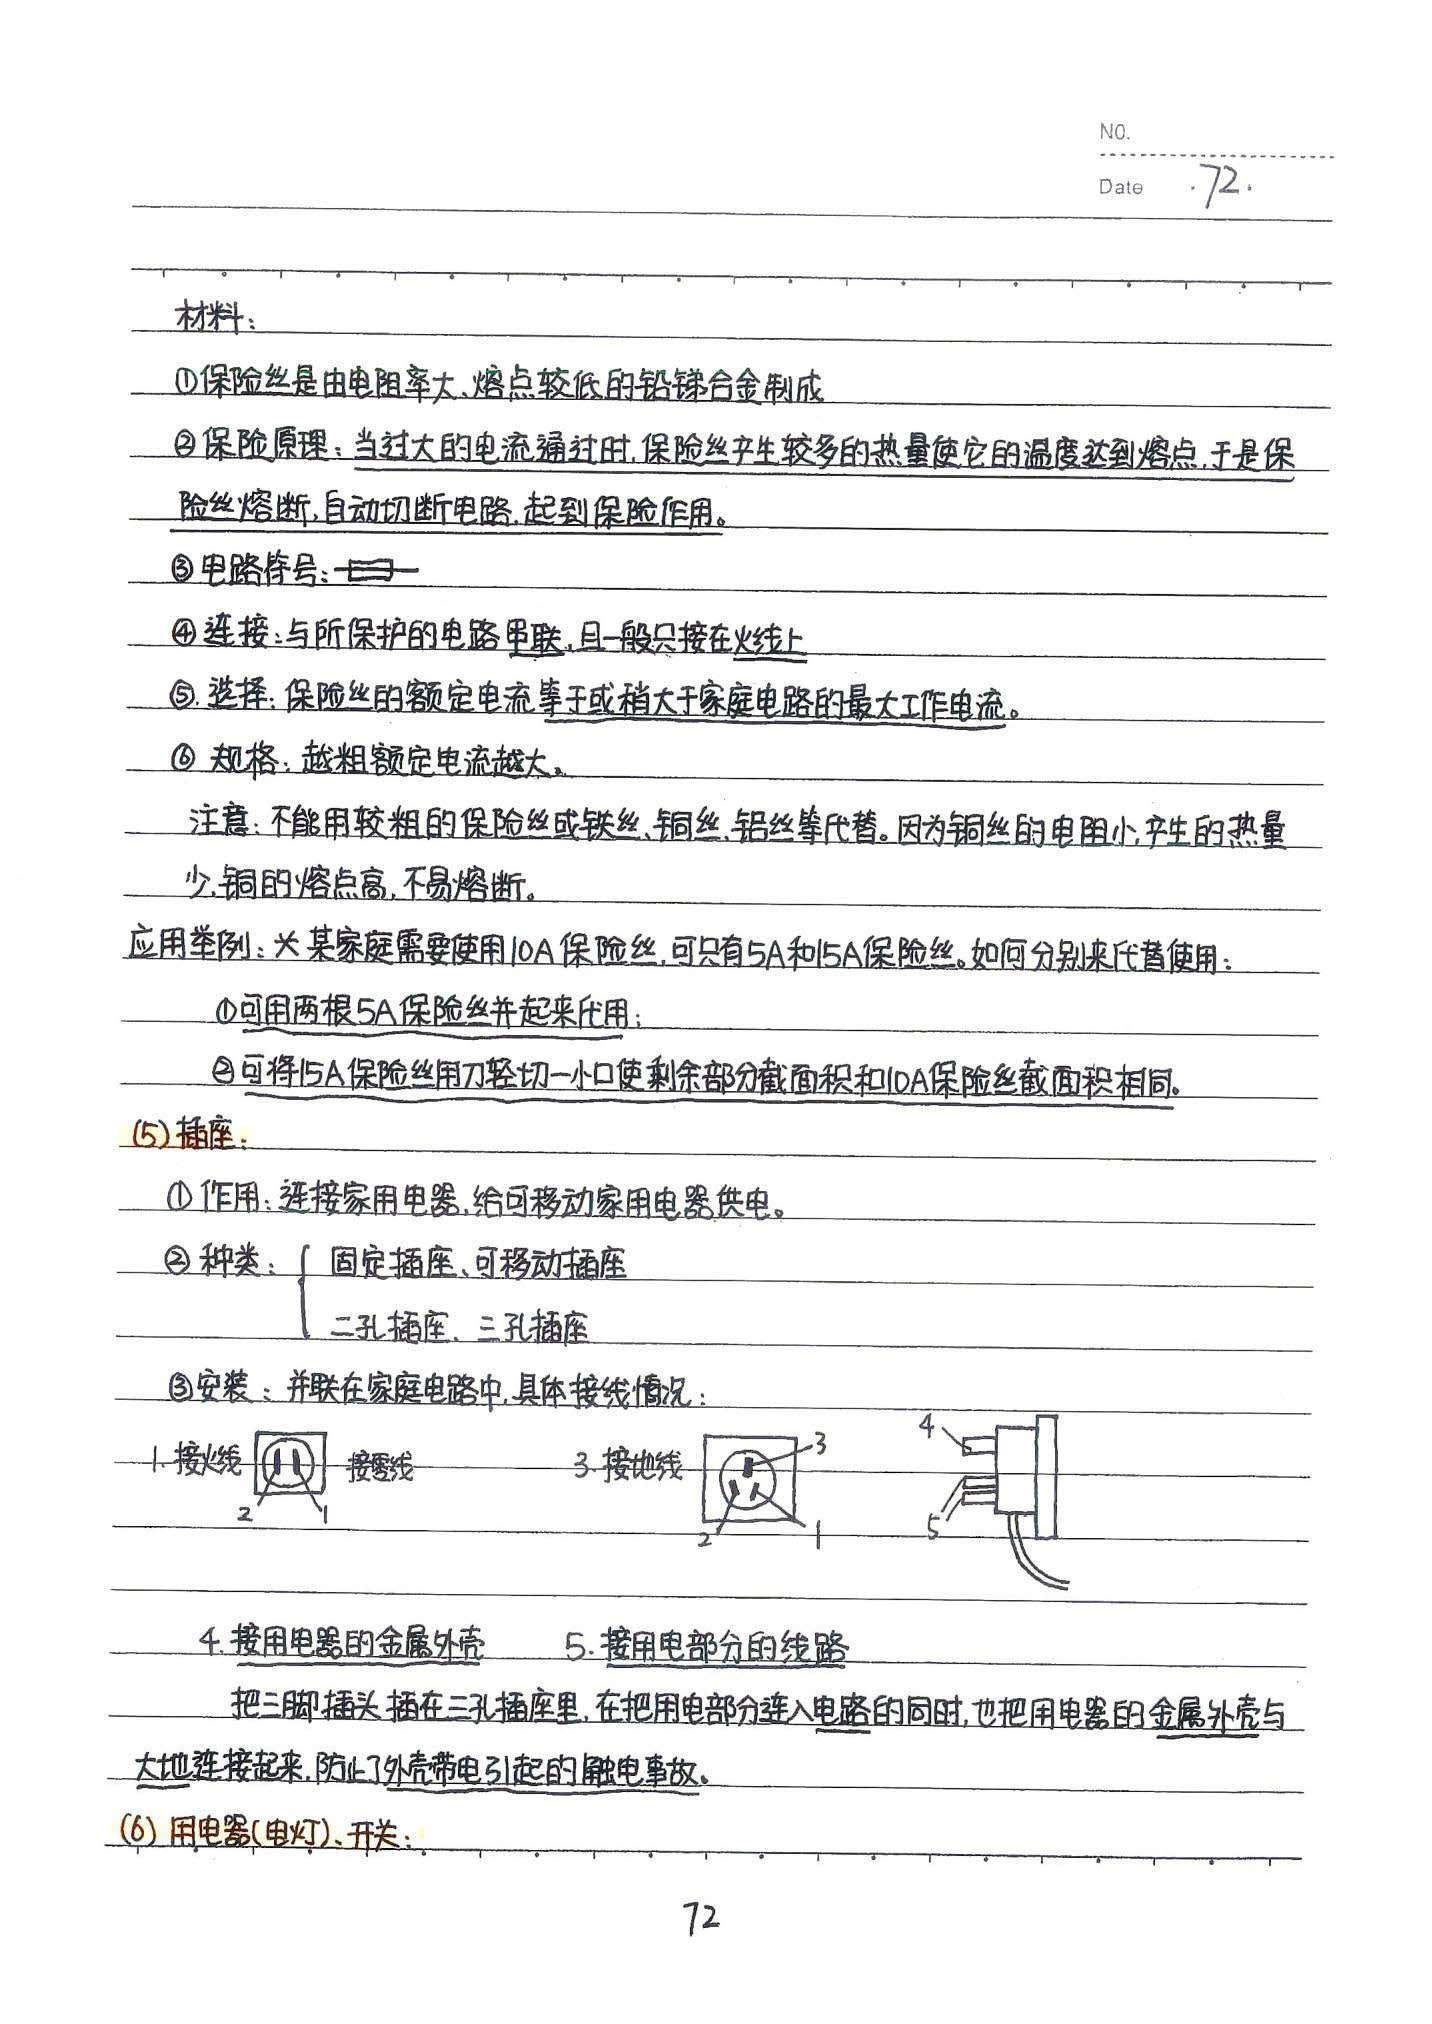 NO.
Date .72.
材料:
①保险丝是由电阻率大、熔点较低的铅锑合金制成
②保险原理:当过大的电流通过时,保险丝产生较多的热量使它的温度达到熔点,于是保
险丝熔断,自动切断电路,起到保险作用。
③电路符号:
④连接:与所保护的电路串联,且一般只接在火线上
⑤.选择:保险丝的额定电流等于或稍大于家庭电路的最大工作电流。
⑥ 规格:越粗额定电流越大。
注意:不能用较粗的保险丝或铁丝、铜丝、铝丝等代替。因为铜丝的电阻小,产生的热量
少,铜的熔点高,不易熔断。
应用举例:※某家庭需要使用10A保险丝,可只有5A和15A保险丝。如何分别来代替使用:
①可用两根5A保险丝并起来代用;
②可将15A保险丝用刀轻切一小口使剩余部分截面积和10A保险丝截面积相同。
(5)插座:
①作用:连接家用电器,给可移动家用电器供电。
②种类: 固定插座、可移动插座
二孔插座、三孔插座
③安装:并联在家庭电路中,具体接线情况:
1.接火线 2 1 接零线 3.接地线 3 2 1 4 5
4.接用电器的金属外壳 5.接用电部分的线路
把三脚插头插在三孔插座里,在把用电部分连入电路的同时,也把用电器的金属外壳与
大地连接起来,防止了外壳带电引起的触电事故。
(6)用电器(电灯)、开关:
72